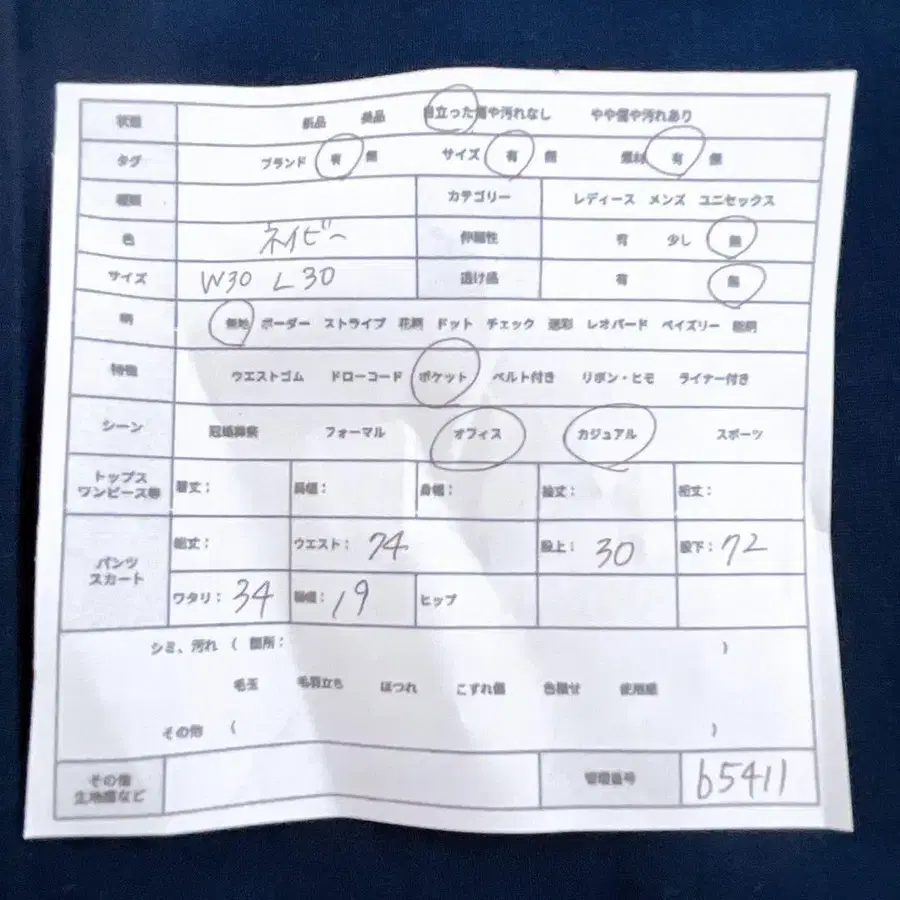 状態 新品 美品 目立った傷や汚れなし やや傷や汚れあり
タグ ブランド 有 無 サイズ 有 無 素材 有 無
種類 カテゴリー レディース メンズ ユニセックス
色 ネイビー 伸縮性 有 少し 無
サイズ W30 L30 透け感 有 無
柄 無地 ボーダー ストライプ 花柄 ドット チェック 迷彩 レオパード ペイズリー 総柄
特徴 ウエストゴム ドローコード ポケット ベルト付き リボン・ヒモ ライナー付き
シーン 冠婚葬祭 フォーマル オフィス カジュアル スポーツ
トップス
ワンピース等
着丈: 肩幅: 身幅: 袖丈: 裄丈:
パンツ
スカート
総丈: ウエスト: 74 股上: 30 股下: 72
ワタリ: 34 裾幅: 19 ヒップ
シミ、汚れ ( 箇所: )
毛玉 毛羽立ち ほつれ こすれ傷 色褪せ 使用感
その他 ( )
その他
生地感など
管理番号 b5411